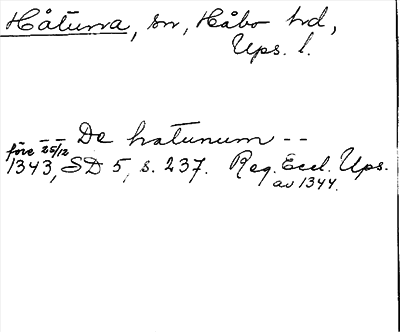 Håtuna, sn, Håbo hd,
Ups. l.
-- De hatunum --
före 25/12
1343, SD 5, s. 237. Reg. Eccl. Ups.
av 1344.